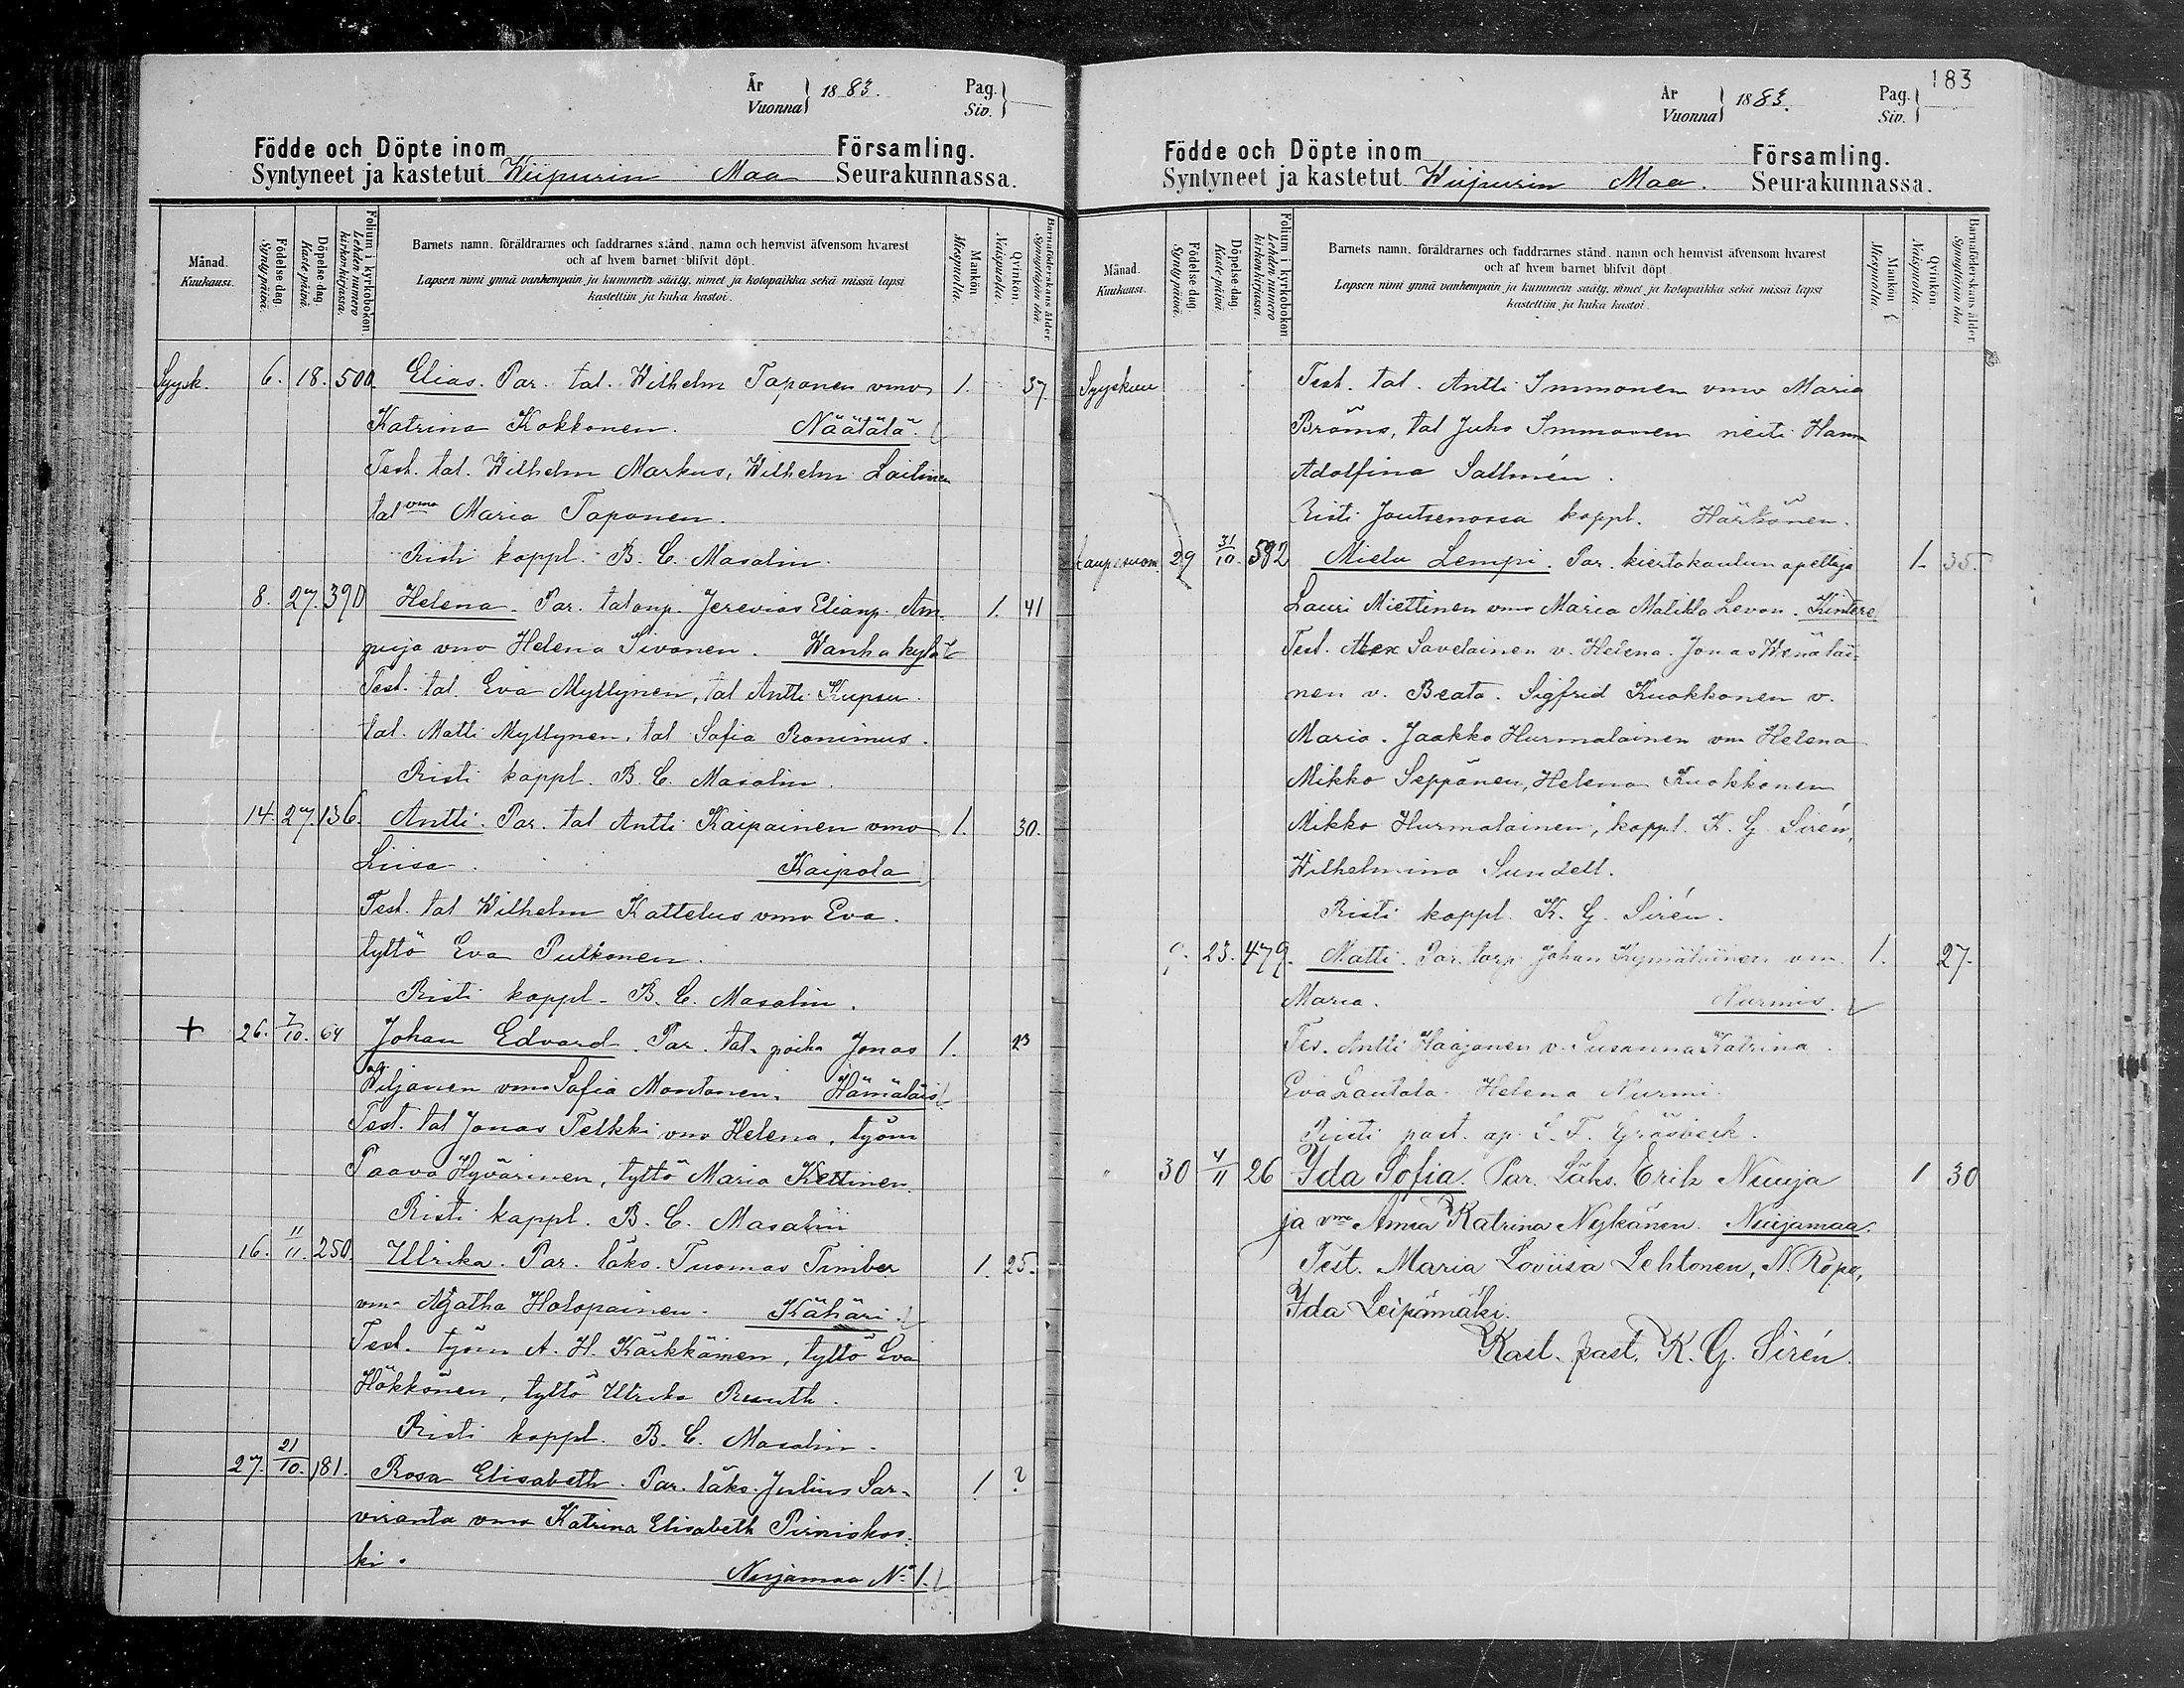 År
Vuonna } 1883.
Pag.
Siv. }
Födde och Döpte inom Församling.
Syntyneet ja kastetut Wiipurin Maa Seurakunnassa.
Månad.
Kuukausi.
Födelse dag.
Syntypäivä.
Döpelse dag.
Kastepäivä.
Folium i kyrkoboken.
Lehden numero kirkonkirjassa.
Barnets namn, föräldrarnes och faddrarnes stånd, namn och hemvist äfvensom hvarest
och af hvem barnet blifvit döpt.
Lapsen nimi ynnä vanhempain ja kummein sääty, nimet ja kotopaikka sekä missä lapsi
kastettiin ja kuka kastoi.
Mankön.
Miespuolia.
Qvinkön.
Naispuolia.
Barnaföderskans ålder.
Synnyttäjän ikä.
Syysk. 6. 18. 500 Elias. Par. tal. Wilhelm Taponen vmo 1. 37
Katrina Kokkonen. Näätälä.
Test. tal. Wilhelm Markus, Wilhelm Laitinen
tal vmo Maria Taponen.
Risti kappl. B. C. Masalin.
8. 27. 390 Helena. Par. talonp. Jerevias Elianp. Am- 1. 41
puja vmo Helena Sivonen. Wanhakylä
Test. tal. Eva Myllynen, tal Antti Kupsu.
tal. Matti Myllynen, tal Sofia Ronimus.
Risti kappl. B. C. Masalin.
14. 27. 136. Antti. Par. tal Antti Kaipainen vmo 1. 30.
Liisa. Kaipola
Test. tal Wilhelm Kattelus vmo Eva.
tyttö Eva Pulkonen.
Risti kappl. B. C. Masalin.
+ 26. 7/10. 64 Johan Edvard. Par. tal. poika Jonas 1. 23
Wiljanen vmo Sofia Montonen. Hämäläis
Test. tal Jonas Telkki vmo Helena, työm
Paavo Hyvärinen, tyttö Maria Kettinen.
Risti kappl. B. C. Masalin
16. 11/11. 250. Ulrika. Par. läks. Tuomas Timber 1. 25.
vm. Agatha Holopainen. Kähäri.
Test. työm A. H. Kärkkäinen, tyttö Eva
Hökkönen, tyttö Ulrika Ruuth.
Risti kappl. B. C. Masalin.
27. 21/10. 181. Rosa Elisabeth. Par. läks. Julius Sar- 1 ?
viranta vmo Katrina Elisabeth Pirniskos-
ki. Nuijamaa No 1.
183
År
Vuonna } 1883.
Pag.
Siv. }
Födde och Döpte inom Församling.
Syntyneet ja kastetut Wiipurin Maa. Seurakunnassa.
Månad.
Kuukausi.
Födelse dag.
Syntypäivä.
Döpelse dag.
Kastepäivä.
Folium i kyrkoboken.
Lehden numero kirkonkirjassa.
Barnets namn, föräldrarnes och faddrarnes stånd, namn och hemvist äfvensom hvarest
och af hvem barnet blifvit döpt.
Lapsen nimi ynnä vanhempain ja kummein sääty, nimet ja kotopaikka sekä missä lapsi
kastettiin ja kuka kastoi.
Mankön.
Miespuolia.
Qvinkön.
Naispuolia.
Barnaföderskans ålder.
Synnyttäjän ikä.
Syyskuu Test. tal. Antti Immonen vmo Maria
Bröms, tal Juho Immonen neiti Hanna
Adolfina Sallmén.
Risti Joutsenossa kappl. Härkönen.
29 31/10. 582 Mielu Lempi. Par. kiertokoulun opettaja 1. 35.
Lauri Miettinen vmo Maria Matilda Levon. Kintere
Test. Alex Savelainen v. Helena. Jonas Wenäläi-
nen v. Beata. Sigfrid Kuokkonen v.
Maria. Jaakko Hurmalainen vm Helena
Mikko Seppänen, Helena Kuokkonen
Mikko Hurmalainen, kappl. K. G. Sirén,
Wilhelmina Sundell.
Risti kappl. K. G. Sirén.
9. 23. 479. Matti. Par. torp. Johan Kymäläinen vm. 1. 27.
Maria. Nurmis.
Tes. Antti Haajanen v. Susanna Katrina.
Eva Lautala. Helena Nurmi.
Risti past. ap. L. T. Gräsbeck.
" 30 4/11 26 Ida Sofia. Par. Läks. Erik Nuija 1 30
ja vmo Anna Katrina Nykänen. Nuijamaa.
Test. Maria Loviisa Lehtonen, N. Ropo,
Ida Leipämäki.
Kast. past. K. G. Sirén.